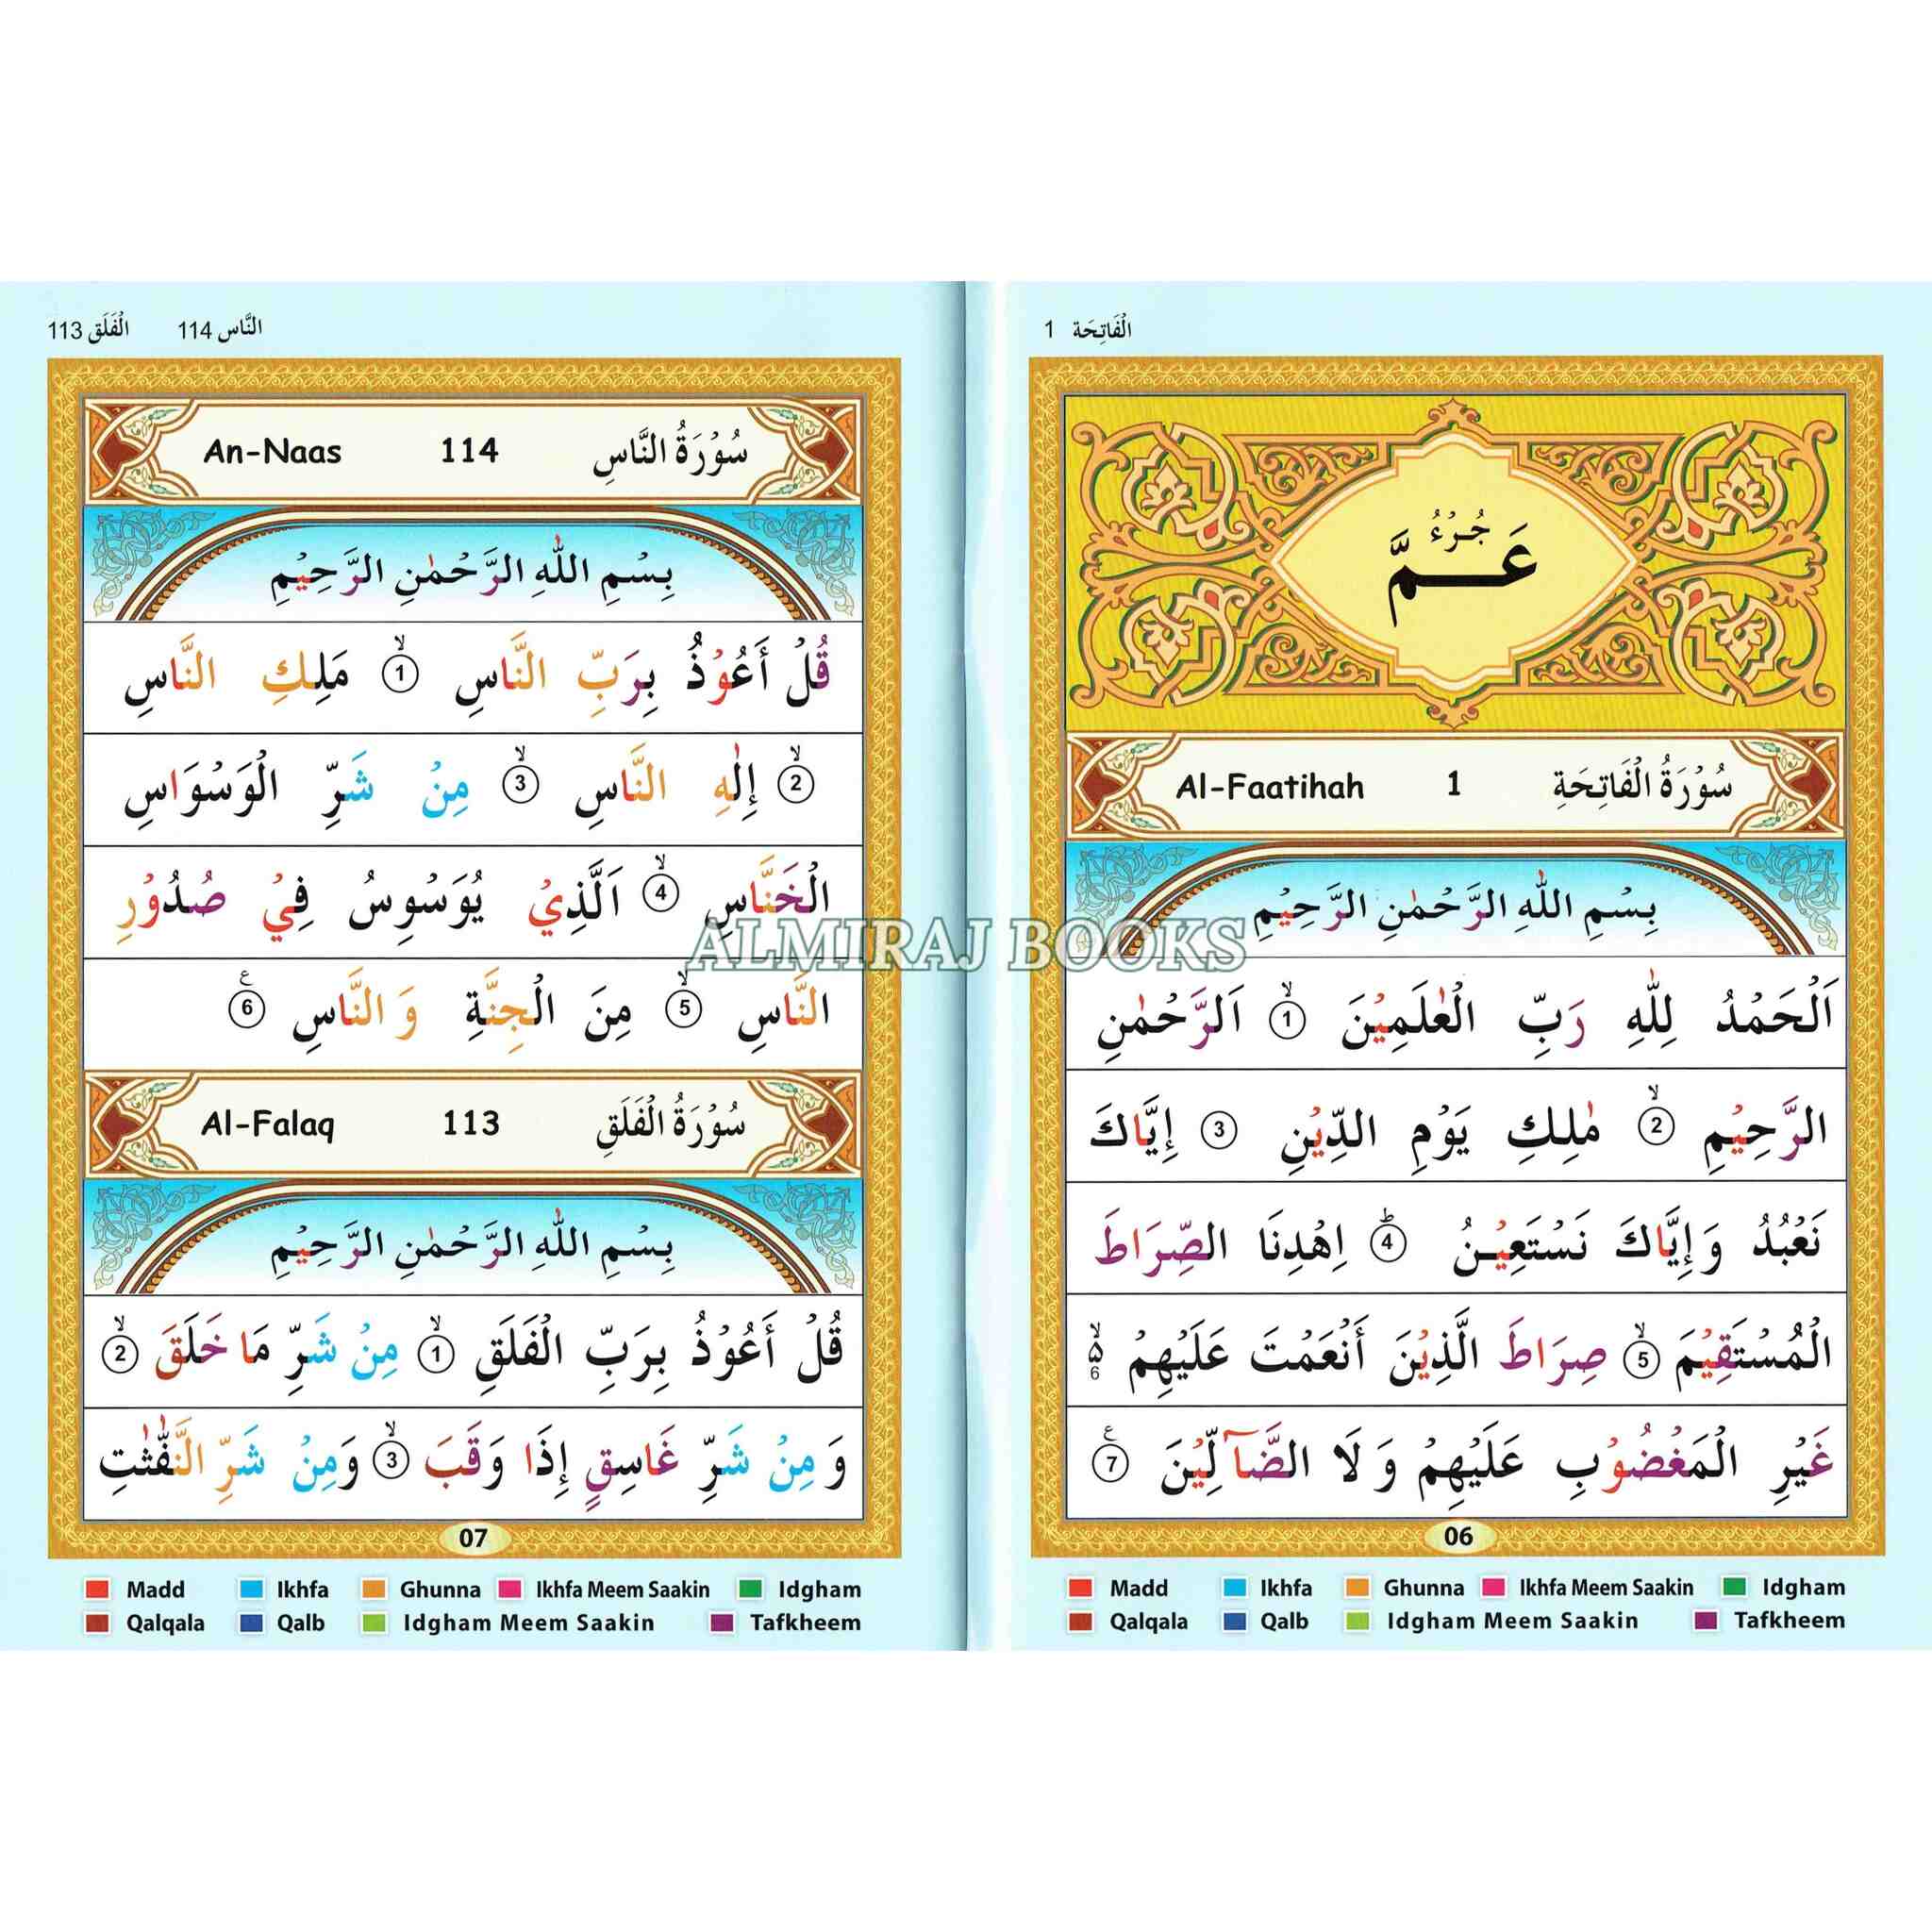 الْفَاتِحَة 1
جُزْءُ
عَمَّ
سُوْرَةُ الْفَاتِحَةِ 1 Al-Faatihah
بِسْمِ اللّٰهِ الرَّحْمٰنِ الرَّحِيْمِ
اَلْحَمْدُ لِلّٰهِ رَبِّ الْعٰلَمِيْنَ ۙ 1 اَلرَّحْمٰنِ
الرَّحِيْمِ ۙ 2 مٰلِكِ يَوْمِ الدِّيْنِ 3 إِيَّاكَ
نَعْبُدُ وَ إِيَّاكَ نَسْتَعِيْنُ ؕ 4 اِهْدِنَا الصِّرَاطَ
الْمُسْتَقِيْمَ ۙ 5 صِرَاطَ الَّذِيْنَ أَنْعَمْتَ عَلَيْهِمْ ۙ ۵ 6
غَيْرِ الْمَغْضُوْبِ عَلَيْهِمْ وَ لَا الضَّآلِّيْنَ ع 7
06
Madd Ikhfa Ghunna Ikhfa Meem Saakin Idgham
Qalqala Qalb Idgham Meem Saakin Tafkheem
النَّاس 114 الْفَلَق 113
سُوْرَةُ النَّاسِ 114 An-Naas
بِسْمِ اللّٰهِ الرَّحْمٰنِ الرَّحِيْمِ
قُلْ أَعُوْذُ بِرَبِّ النَّاسِ ۙ 1 مَلِكِ النَّاسِ
ۙ 2 إِلٰهِ النَّاسِ ۙ 3 مِنْ شَرِّ الْوَسْوَاسِ
الْخَنَّاسِ ۙ 4 اَلَّذِيْ يُوَسْوِسُ فِيْ صُدُوْرِ
النَّاسِ ۙ 5 مِنَ الْجِنَّةِ وَ النَّاسِ ع 6
سُوْرَةُ الْفَلَقِ 113 Al-Falaq
بِسْمِ اللّٰهِ الرَّحْمٰنِ الرَّحِيْمِ
قُلْ أَعُوْذُ بِرَبِّ الْفَلَقِ ۙ 1 مِنْ شَرِّ مَا خَلَقَ ۙ 2
وَ مِنْ شَرِّ غَاسِقٍ إِذَا وَقَبَ ۙ 3 وَمِنْ شَرِّ النَّفّٰثٰتِ
07
Madd Ikhfa Ghunna Ikhfa Meem Saakin Idgham
Qalqala Qalb Idgham Meem Saakin Tafkheem
ALMIRAJ BOOKS